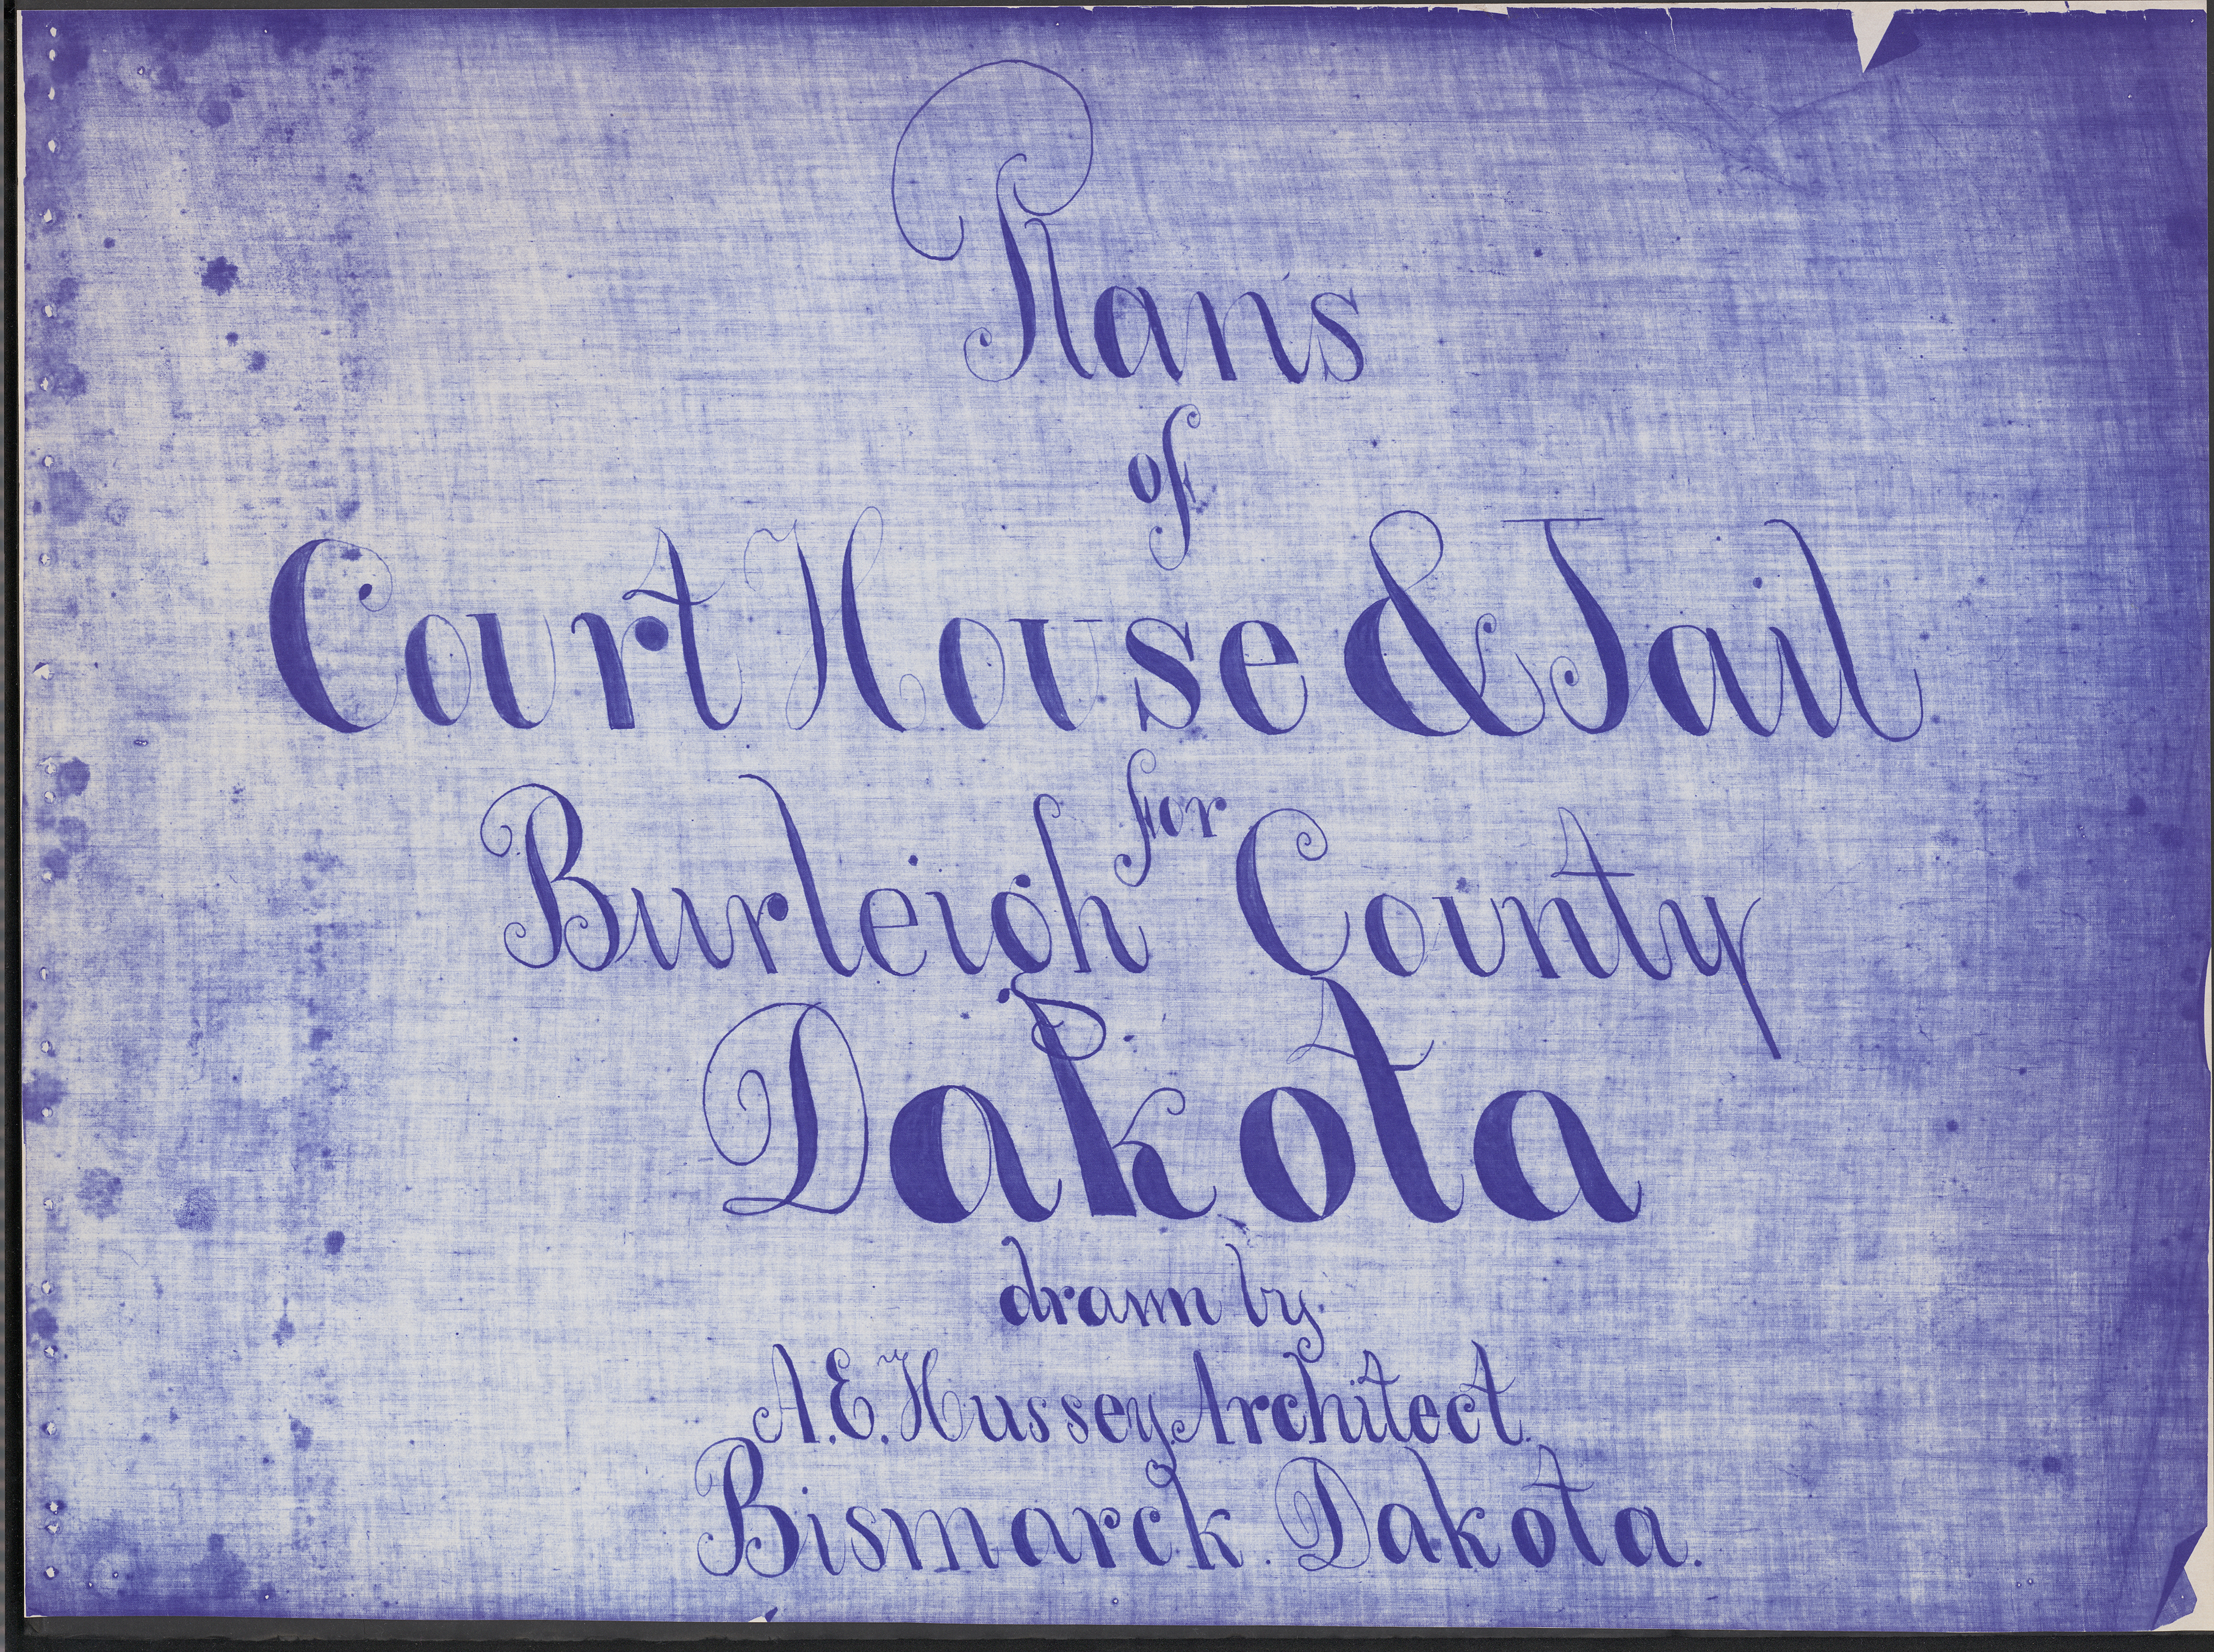 Plans
of
Court House & Jail
for
Burleigh County
Dakota
drawn by
A. E. Hussey, Architect.
Bismarck Dakota.